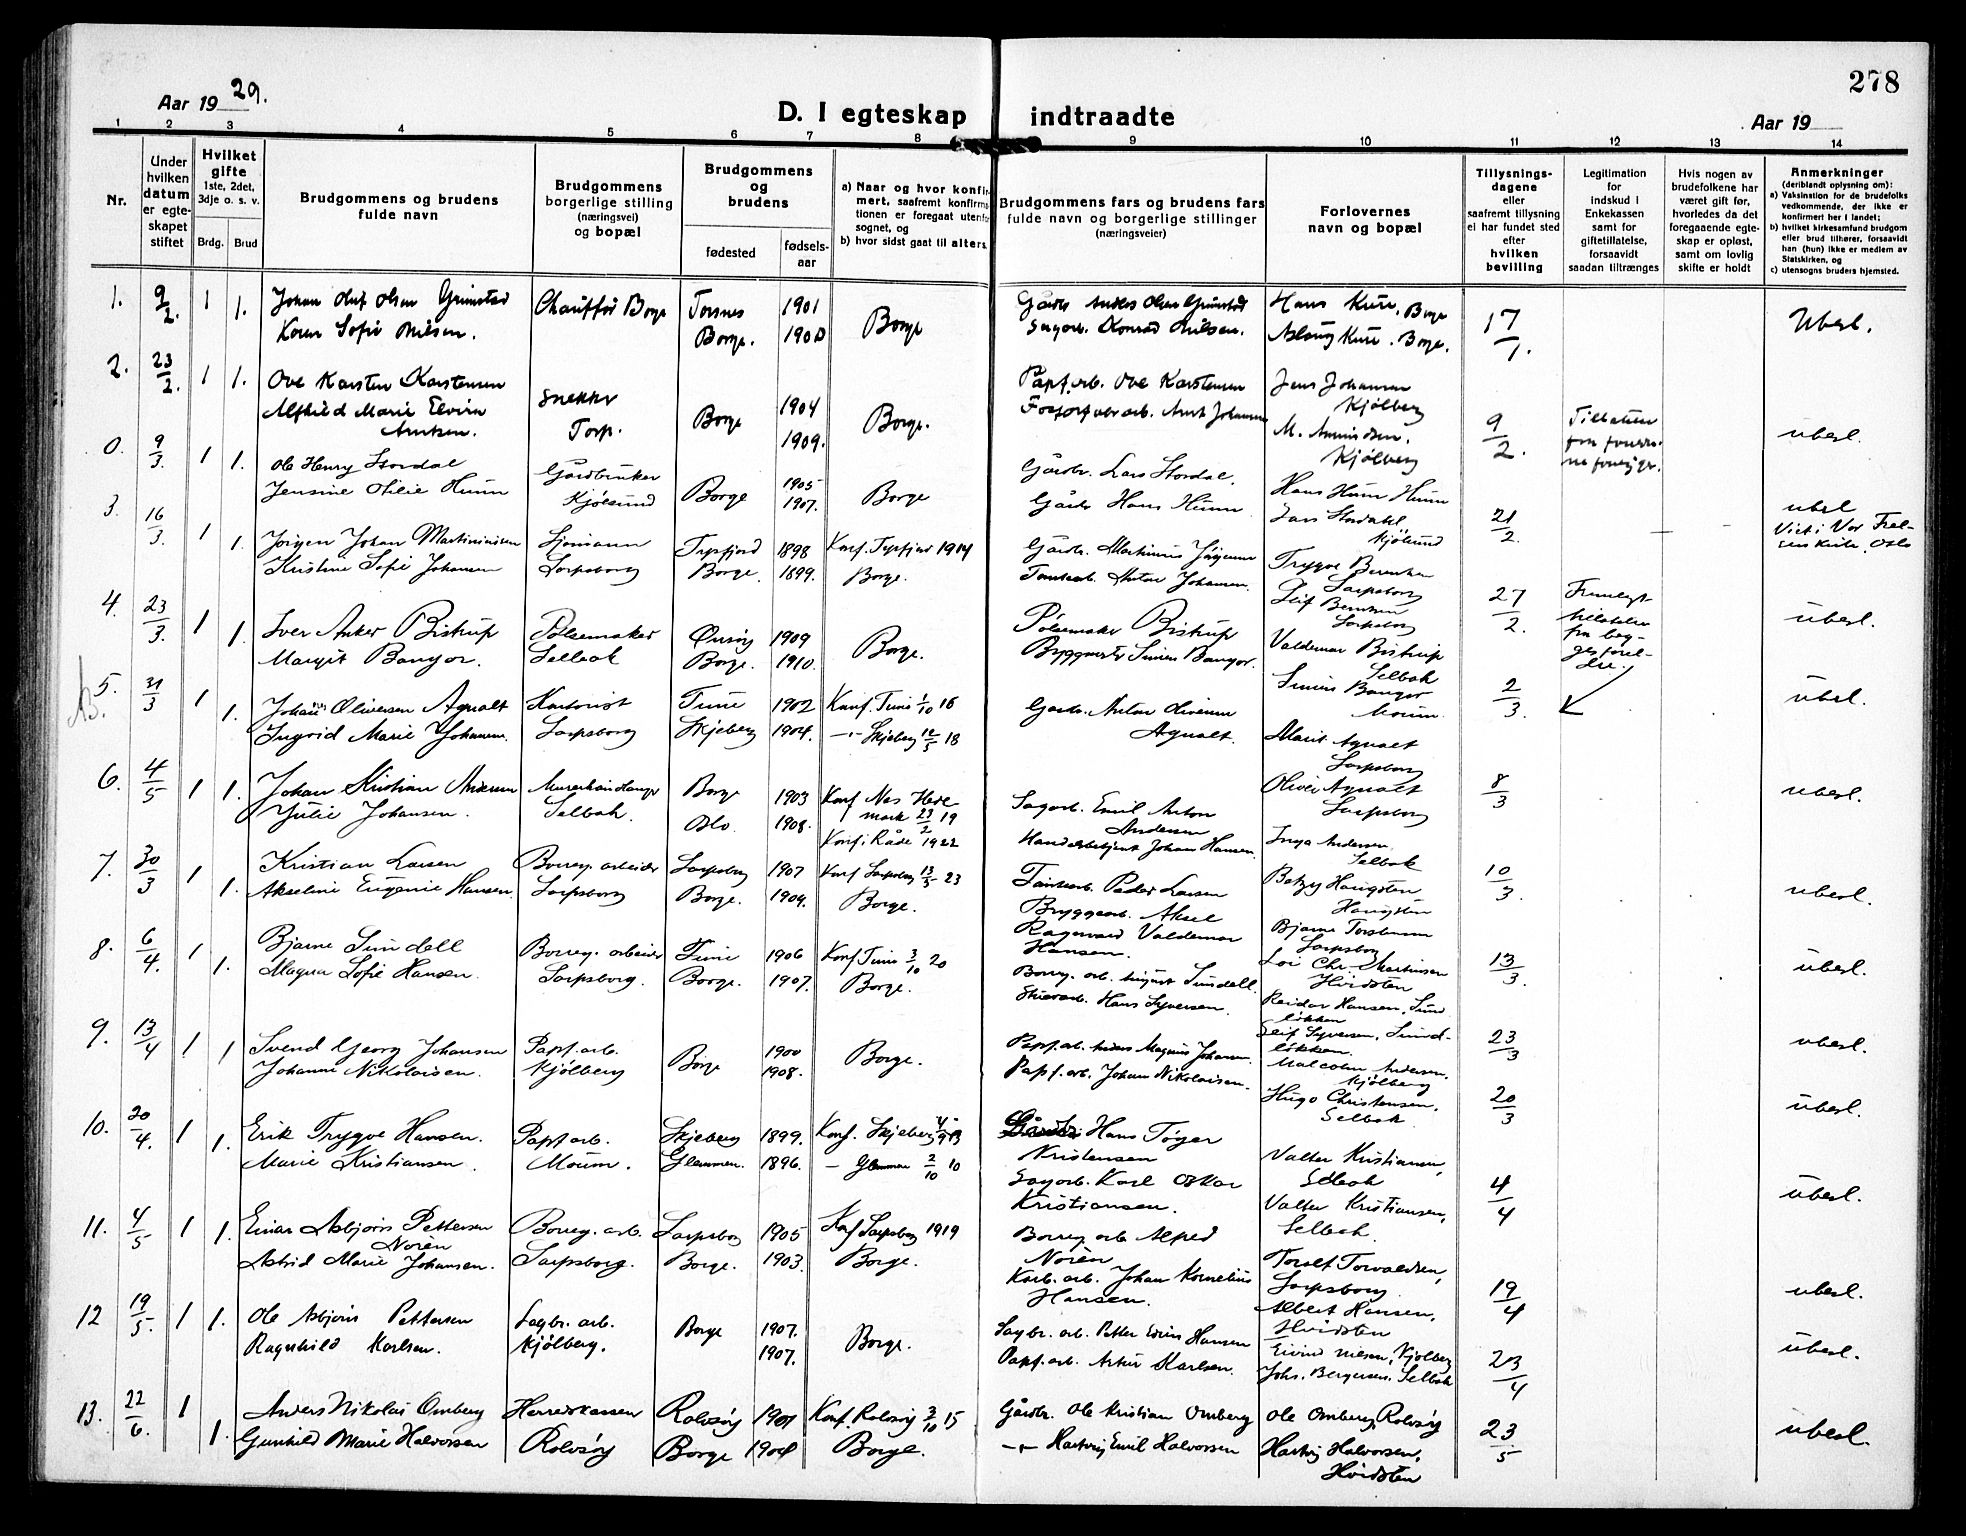 278
Aar 19 29.
D. I egteskap indtraadte
Aar 19
1 2 3 4 5 6 7 8 9 10 11 12 13 14
Nr.
Under hvilken datum er egte-skapet stiftet
Hvilket gifte 1ste, 2det, 3dje o. s. v.
Brdg. Brud
Brudgommens og brudens fulde navn
Brudgommens borgerlige stilling (næringsvei) og bopæl
Brudgommens og brudens
fødested
fødsels-aar
a) Naar og hvor konfir-mert, saafremt konfirma-tionen er foregaat utenfor sognet, og
b) hvor sidst gaat til alters.
Brudgommens fars og brudens fars fulde navn og borgerlige stillinger (næringsveier)
Forlovernes navn og bopæl
Tillysnings-dagene eller saafremt tillysning ei har fundet sted efter hvilken bevilling
Legitimation for indskud i Enkekassen samt for giftetillatelse, forsaavidt saadan tiltrænges
Hvis nogen av brudefolkene har været gift før, hvorledes da det foregaaende egte-skap er opløst, samt om lovlig skifte er holdt
Anmerkninger (deriblandt oplysning om):
a) Vaksination for de brudefolks vedkommende, der ikke er konfirmert her i landet;
b) hvilket kirkesamfund brudgom eller brud tilhører, forsaavidt han (hun) ikke er medlem av Statskirken, og
c) utensogns bruders hjemsted.
1. 9/2. 1 1. Johan Oluf Olsen Grimstad Chauffør Borge Torsnes 1901 Borge Gårdb. Anders Olsen Grimstad Hans Kure. Borge 17/1. Ubesl.
Karen Sofie Nilsen. Borge. 1900 Sagarb. Konrad Nilsen. Aslaug Kure. Borge.
2. 23/2. 1 1. Ove Karsten Karstensen Snekker Borge 1904 Borge. Papf. arb. Ove Karstensen Jens Johansen Kjølberg 9/2. ubesl.
Alfhild Marie Elvira Arntsen. Torp. 1909. M. Amundsen. Kjølberg Tillatelse fra
0. 9/3. 1 1. Ole Henry Stordal Gårdbruker Borge 1905 Borge Gårdbr. Lars Stordal. Hans Huun Huun 21/2. ubesl
Jensine Otilie Huun Kjølsund 1907. Gårdb. Hans Huun Lars Stordahl Kjølsund
3. 16/3. 1 1. Jørgen Johan Martiniussen Sjømann 1898 1914 Gårdb. Martinius Trygve Berntsen Sarpsborg 27/2. Viet i Vor Frel-sers kirke, Oslo
Kristine Sofie Johansen Sarpsborg Borge. 1899. Borge. Anton Johansen. Leif Berntsen Sarpsborg ubesl.
4. 23/3. 1 1. Iver Anker Bistrup Pølsemaker Onsøy 1909 Borge. Pølsemaker Bistrup Valdemar Bistrup Selbak 2/3. Fremlagt tillatelse fra beg-ges forel-dre.
Margit Bangor. Selbak Borge. 1910. Simen Bangor. Simen Bangor Moum. ubesl.
5. 31/3 1 1. Johan Oliversen Agnalt Kontorist Tune 1902 Konf. Tune 1/10 16 Gårdb. Anton Oliversen Agnalt. Marit Agnalt Sarpsborg 8/3 ubesl.
Ingrid Marie Johansen. Sarpsborg Skjeberg 1904. -"- Skjeberg 12/5 18 Oliver Agnalt Sarpsborg
6. 4/5 1 1. Johan Kristian Andersen Murerhandlanger Borge 1903 Konf Nes Hede-mark 23/2 19 Sagarb. Emil Anton Andersen Inga Andersen Selbak 10/3. ubesl.
Julie Johansen. Selbak. Do. 1908. Konf. i Råde 1922 Handelsbetjent Johan Hansen. Betzy Haugsten Haugsten
7. 30/3 1 1. Kristian Larsen Borreg. arbeider Sarpsborg 1907 Konf Sarpsborg 13/5 23 Tomtearb. Peder Larsen Bjarne Torstensen Sarpsborg 13/3. ubesl.
Akseline Eugenie Hansen. Sarpsborg Borge. 1909. Borge. Bryggearb. Aksel Ragnvald Valdemar Hansen. Chr. Martinsen Hvidsten
8. 6/4. 1 1. Bjarne Sundell Borreg. arbeider Tune 1906 Konf Tune 3/10 20 Borreg. arb. August Sundell. Reidar Hansen, Sundløkken 23/3 ubesl.
Magna Sofie Hansen. Sarpsborg. Borge. 1907. Borge. Hans Syversen. Leif Syversen, Sund-løkken.
9. 13/4 1 1 Svend Georg Johansen Papf. arb. Borge 1900 Borge. Papf. arb. Anders Magnus Johansen. Malcolm Andersen. Kjølberg 20/3 ubesl.
Johanne Nikolaisen. Kjølberg 1908. Papf. arb. Johan Nikolaisen. Hugo Christensen, Selbak.
10. 20/4. 1 1. Erik Trygve Hansen. Papf arb. Skjeberg 1899. Konf. Skjeberg Hans Tøger Kristensen Valter Kristiansen, Selbak 4/4 ubesl.
Marie Kristiansen. Moum. Glemmen. 1896. - Glemmen 2/10 10 Sagarb. Karl Oskar Kristiansen. Valter Kristiansen, Selbak.
11. 4/5 1 1. Einar Asbjørn Pettersen Norén Borreg. arb. Sarpsborg 1905 Konf Sarpsborg 1919 Borreg arb Alfred Norén Torolf Torvaldsen, Sarpsborg 19/4 ubesl.
Astrid Marie Johansen. Sarpsborg. Borge. 1903. Borge. Karb. arb. Johan Kornelius Hansen. Albert Hansen, Hvidsten
12 19/5. 1 1. Ole Asbjørn Pettersen Sagbr. arb. Borge 1907. Borge. Sagbr. arb. Petter Edvin Hansen Eivind Nilsen, Kjølberg 23/4 ubesl.
Ragnhild Karlsen. Kjølberg. 1907. Papf. arb. Artur Karlsen. Johs. Bergersen. Selbak
13. 22/6. 1 1. Anders Nikolai Omberg Herredskasserer Rolvsøy 1901 Konf. Rolvsøy 3/10 15 Gårdbr. Ole Kristian Omberg Ole Omberg, Rolvsøy 23/5 ubesl.
Gunhild Marie Halvorsen Rolvsøy Borge 1904 Borge. -"- Hartvig Emil Halvorsen Hartvig Halvorsen, Hvidsten